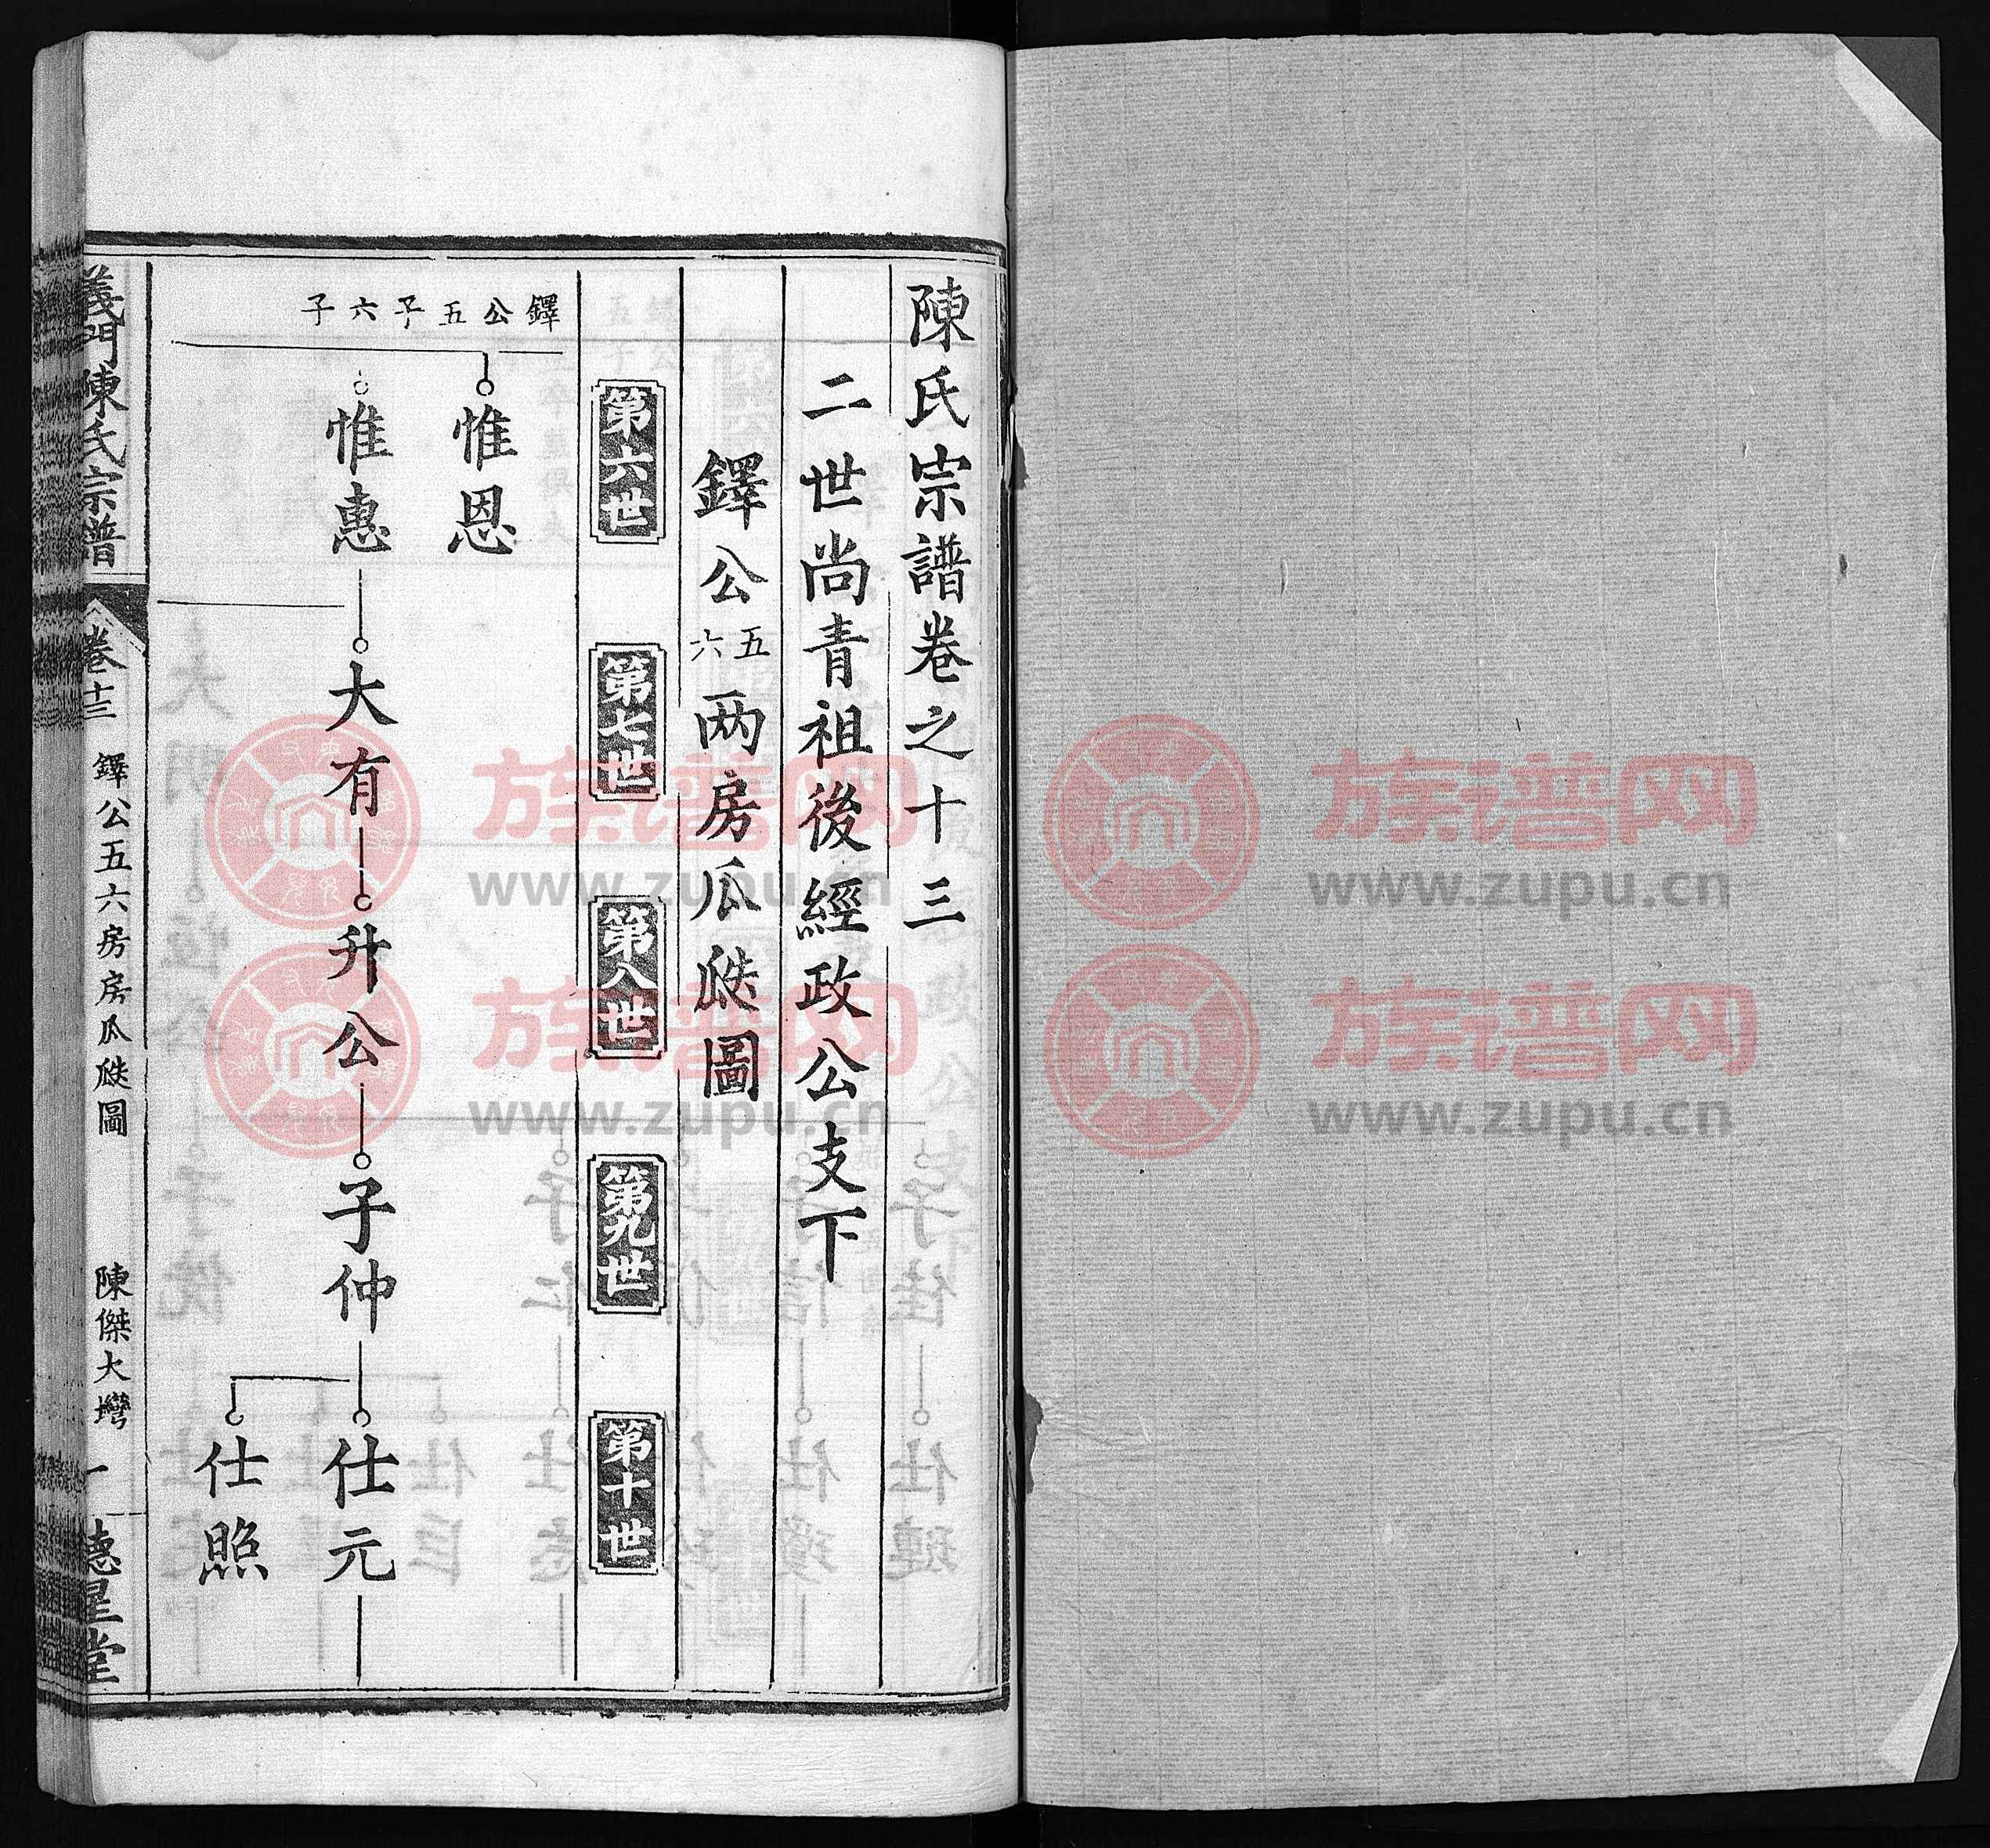 陳氏宗譜卷之十三
二世尚青祖後經政公支下
鐸公五六两房瓜瓞圖
第六世
第七世
第八世
第九世
第十世
鐸公五子六子
惟恩
惟惠
大有
升公
子仲
仕元
仕照
義門陳氏宗譜
卷十三
鐸公五六房房瓜瓞圖
陳傑大灣
一
德星堂
族谱网
www.zupu.cn
族谱网
www.zupu.cn
族谱网
www.zupu.cn
族谱网
www.zupu.cn